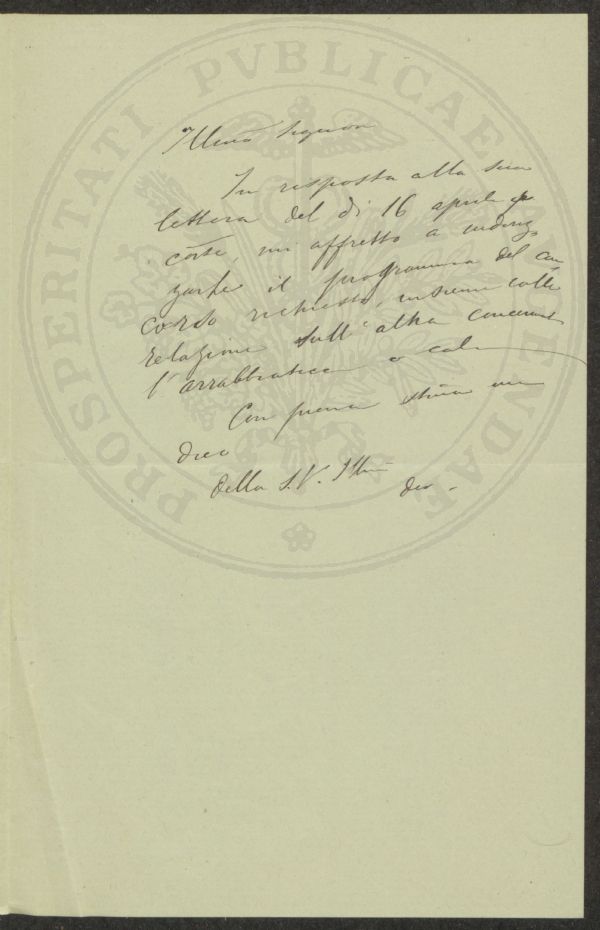 PROSPERITATI PVBLICAE AVGENDAE
Illmo Signore
In risposta alla sua
lettera del dì 16 aprile
corte, mi affretto a indiriz
zarle il programma del con
corso richiesto, insieme colla
relazione sull'altra concernente
l'arrabbiaticcio o cal
Con piena stima mi
dico
Della S.V. Illma
dev.